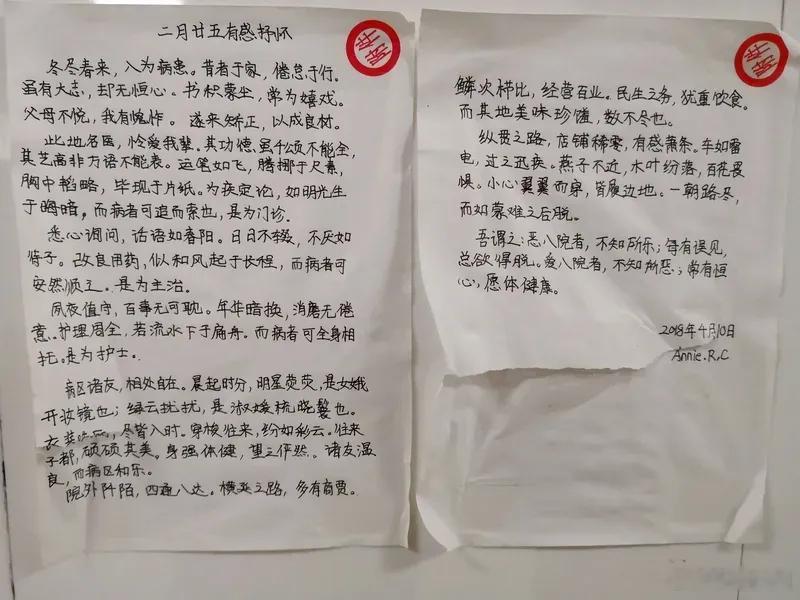 二月廿五有感抒怀
冬尽春来，入为病患。昔者于家，倦怠于行。
虽有大志，却无恒心。书积蒙尘，常为嬉戏。
父母不悦，我有愧怍。遂来矫正，以成良材。
此地名医，怜爱我辈。其功德虽千颂不能全，
其艺高非万语不能表。运笔如飞，腾挪于尺素，
胸中韬略，毕现于片纸。为疾定论，如明光生
于晦暗，而病者可追而索也，是为门诊.
悉心询问，话语如春阳。日日不辍，不厌如
侍子。改良用药，似和风起于长程，而病者可
安然顺之。是为主治。
夙夜值守，百事无可耽。年华暗换，消磨无倦
意。护理周全，若流水下于扁舟。而病者可全身相
托。是为护士.
病区诸友，相处自在。晨起时分，明星荧荧，是女娥
开妆镜也；绿云扰扰，是淑媛梳晓鬟也。
衣装 尽皆入时。穿梭往来，纷如彩云。往来
子都，硕硕其美。身强体健，望之俨然。诸友温
良，而病区和乐。
院外阡陌，四通八达。横亚之路，多有商贾。
陈年
鳞次栉比，经营百业。民生之务，犹重饮食。
而其地美味珍馐，数不尽也。
纵贯之路，店铺稀零，有感萧条。车如雷
电，过之迅疾。燕子不近，木叶纷落，百花畏
惧。小心翼翼而穿，皆履边地。一朝路尽，
而如蒙难之后脱。
吾谓之：恶八院者，不知所乐；每有误见，
总欲得脱。爱八院者，不知所恶；常有恒
心，愿体健康。
2018年4月10日
Annie.R.C